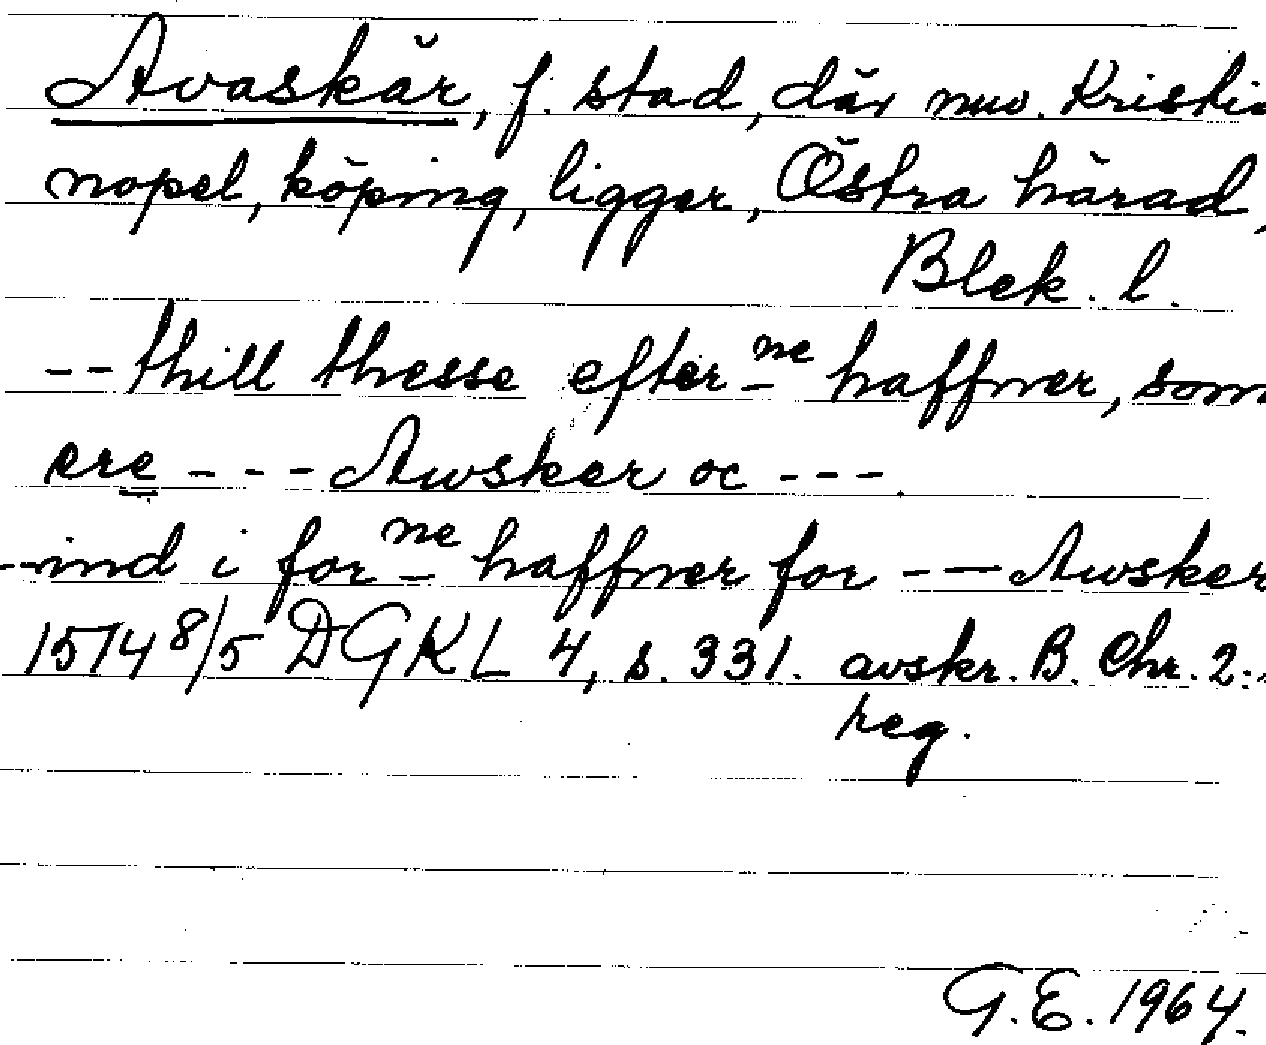 Avaskär, f. stad, där nuv. Kristia
nopel, köping, ligger, Östra härad,
Blek. l.
-- thill thesse efter ne haffner, som
ere - - - Awsker oc - - -
-- ind i for ne haffner for - — Awsker
1514 8/5 DGKL 4, s. 331. avskr. B. Chr. 2:s
reg.
G.E. 1964.